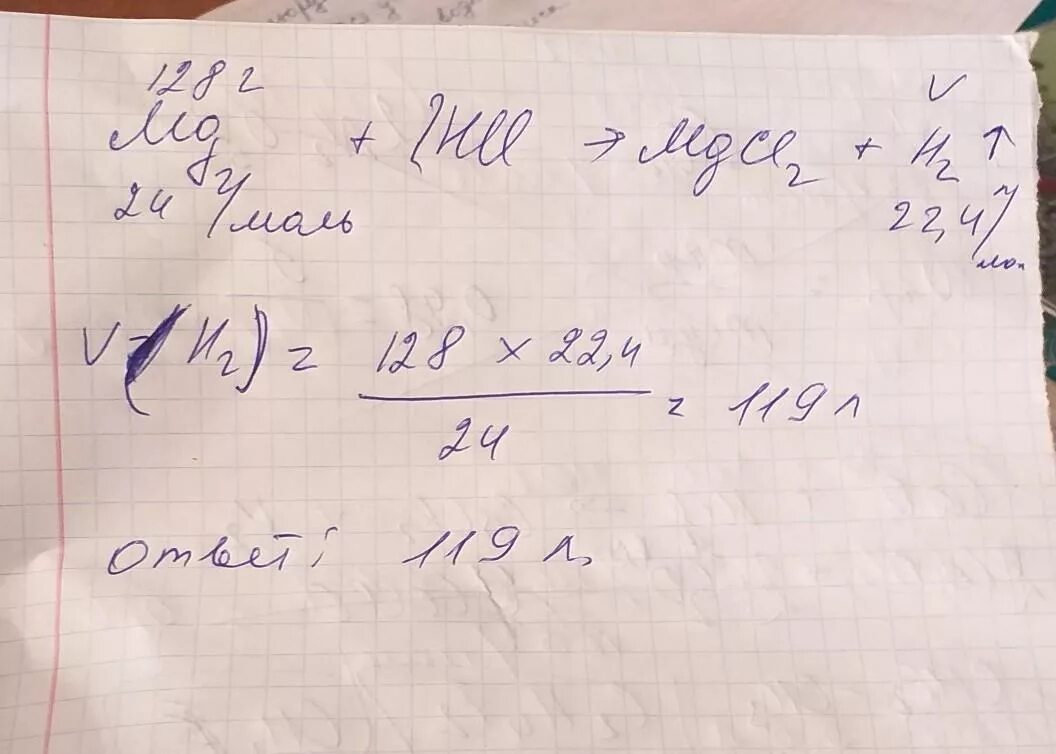 128 г V
Mg + 2HCl → MgCl2 + H2 ↑
24 г/моль 22,4 л/мол
V (H2) = 128 × 22,4
24
= 119 л
ответ: 119 л,